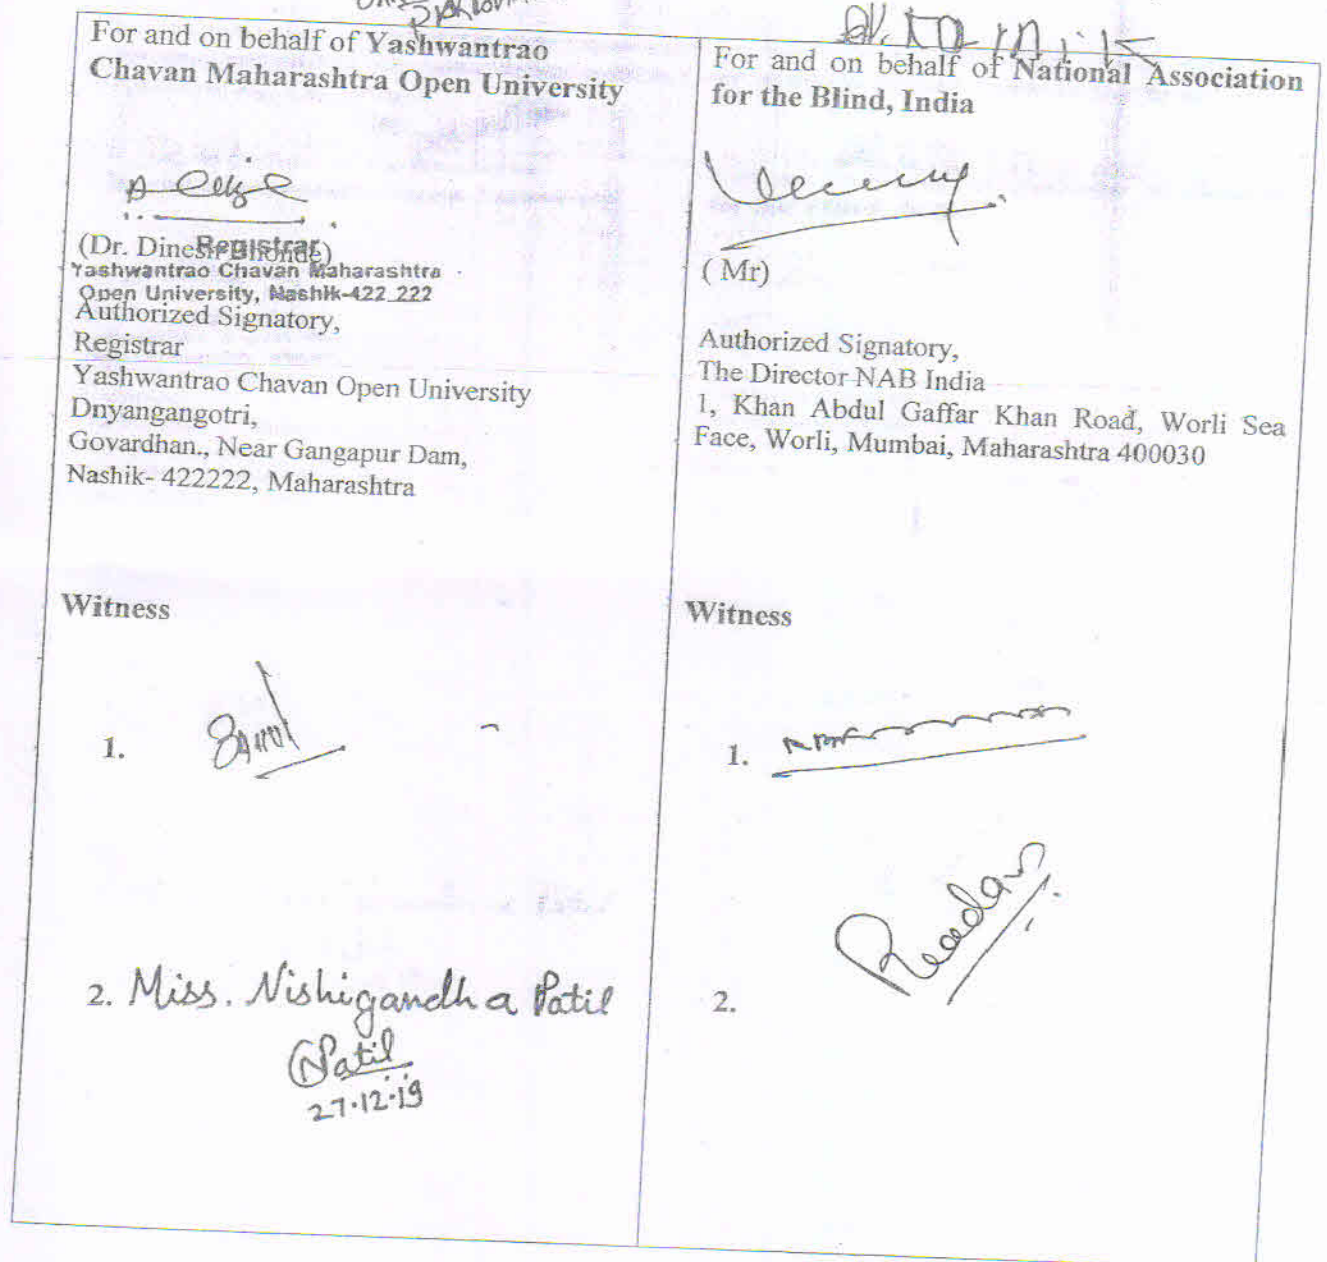 For and on behalf of Yashwantrao
Chavan Maharashtra Open University
(Dr. Dinesh Bhonde)
Registrar
Yashwantrao Chavan Maharashtra
Open University, Nashik-422 222
Authorized Signatory,
Registrar
Yashwantrao Chavan Open University
Dnyangangotri,
Govardhan., Near Gangapur Dam,
Nashik- 422222, Maharashtra
Witness
1.
2. Miss. Nishigandha Patil
NPatil
27.12.19
For and on behalf of National Association
for the Blind, India
( Mr)
Authorized Signatory,
The Director NAB India
1, Khan Abdul Gaffar Khan Road, Worli Sea
Face, Worli, Mumbai, Maharashtra 400030
Witness
1.
2.